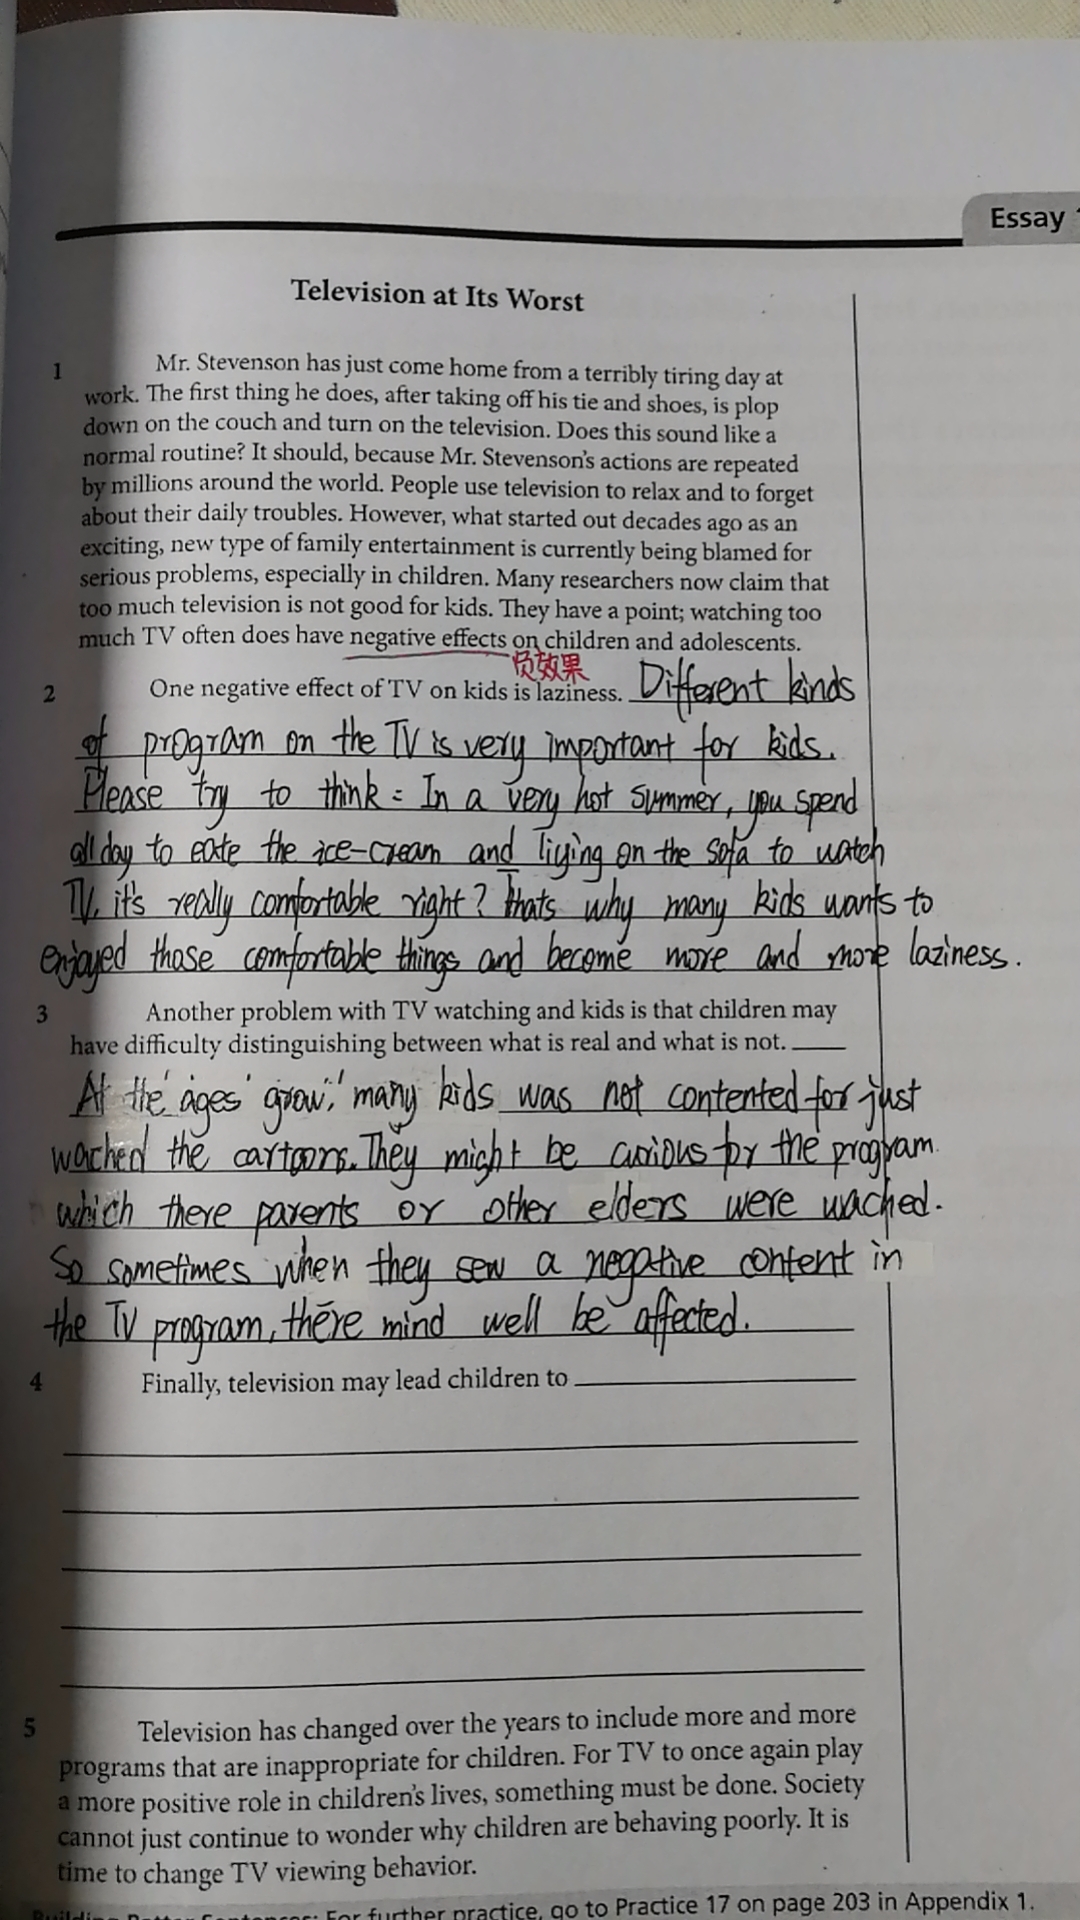 Essay
Television at Its Worst
1 Mr. Stevenson has just come home from a terribly tiring day at
work. The first thing he does, after taking off his tie and shoes, is plop
down on the couch and turn on the television. Does this sound like a
normal routine? It should, because Mr. Stevenson's actions are repeated
by millions around the world. People use television to relax and to forget
about their daily troubles. However, what started out decades ago as an
exciting, new type of family entertainment is currently being blamed for
serious problems, especially in children. Many researchers now claim that
too much television is not good for kids. They have a point; watching too
much TV often does have negative effects on children and adolescents.
负效果
2 One negative effect of TV on kids is laziness. Different kinds
of program on the TV is very important for kids.
Please try to think: In a very hot summer, you spend
all day to eate the ice-cream and liying on the sofa to watch
TV, it's really comfortable right? Thats why many kids wants to
enjoyed those comfortable things and become more and more laziness.
3 Another problem with TV watching and kids is that children may
have difficulty distinguishing between what is real and what is not.
At the ages grow, many kids was not contented for just
wached the cartoons. They might be curious for the program
which there parents or other elders were wached.
So sometimes when they sew a negative content in
the TV program, there mind well be affected.
4 Finally, television may lead children to
5 Television has changed over the years to include more and more
programs that are inappropriate for children. For TV to once again play
a more positive role in children's lives, something must be done. Society
cannot just continue to wonder why children are behaving poorly. It is
time to change TV viewing behavior.
Building Better Sentences: For further practice, go to Practice 17 on page 203 in Appendix 1.